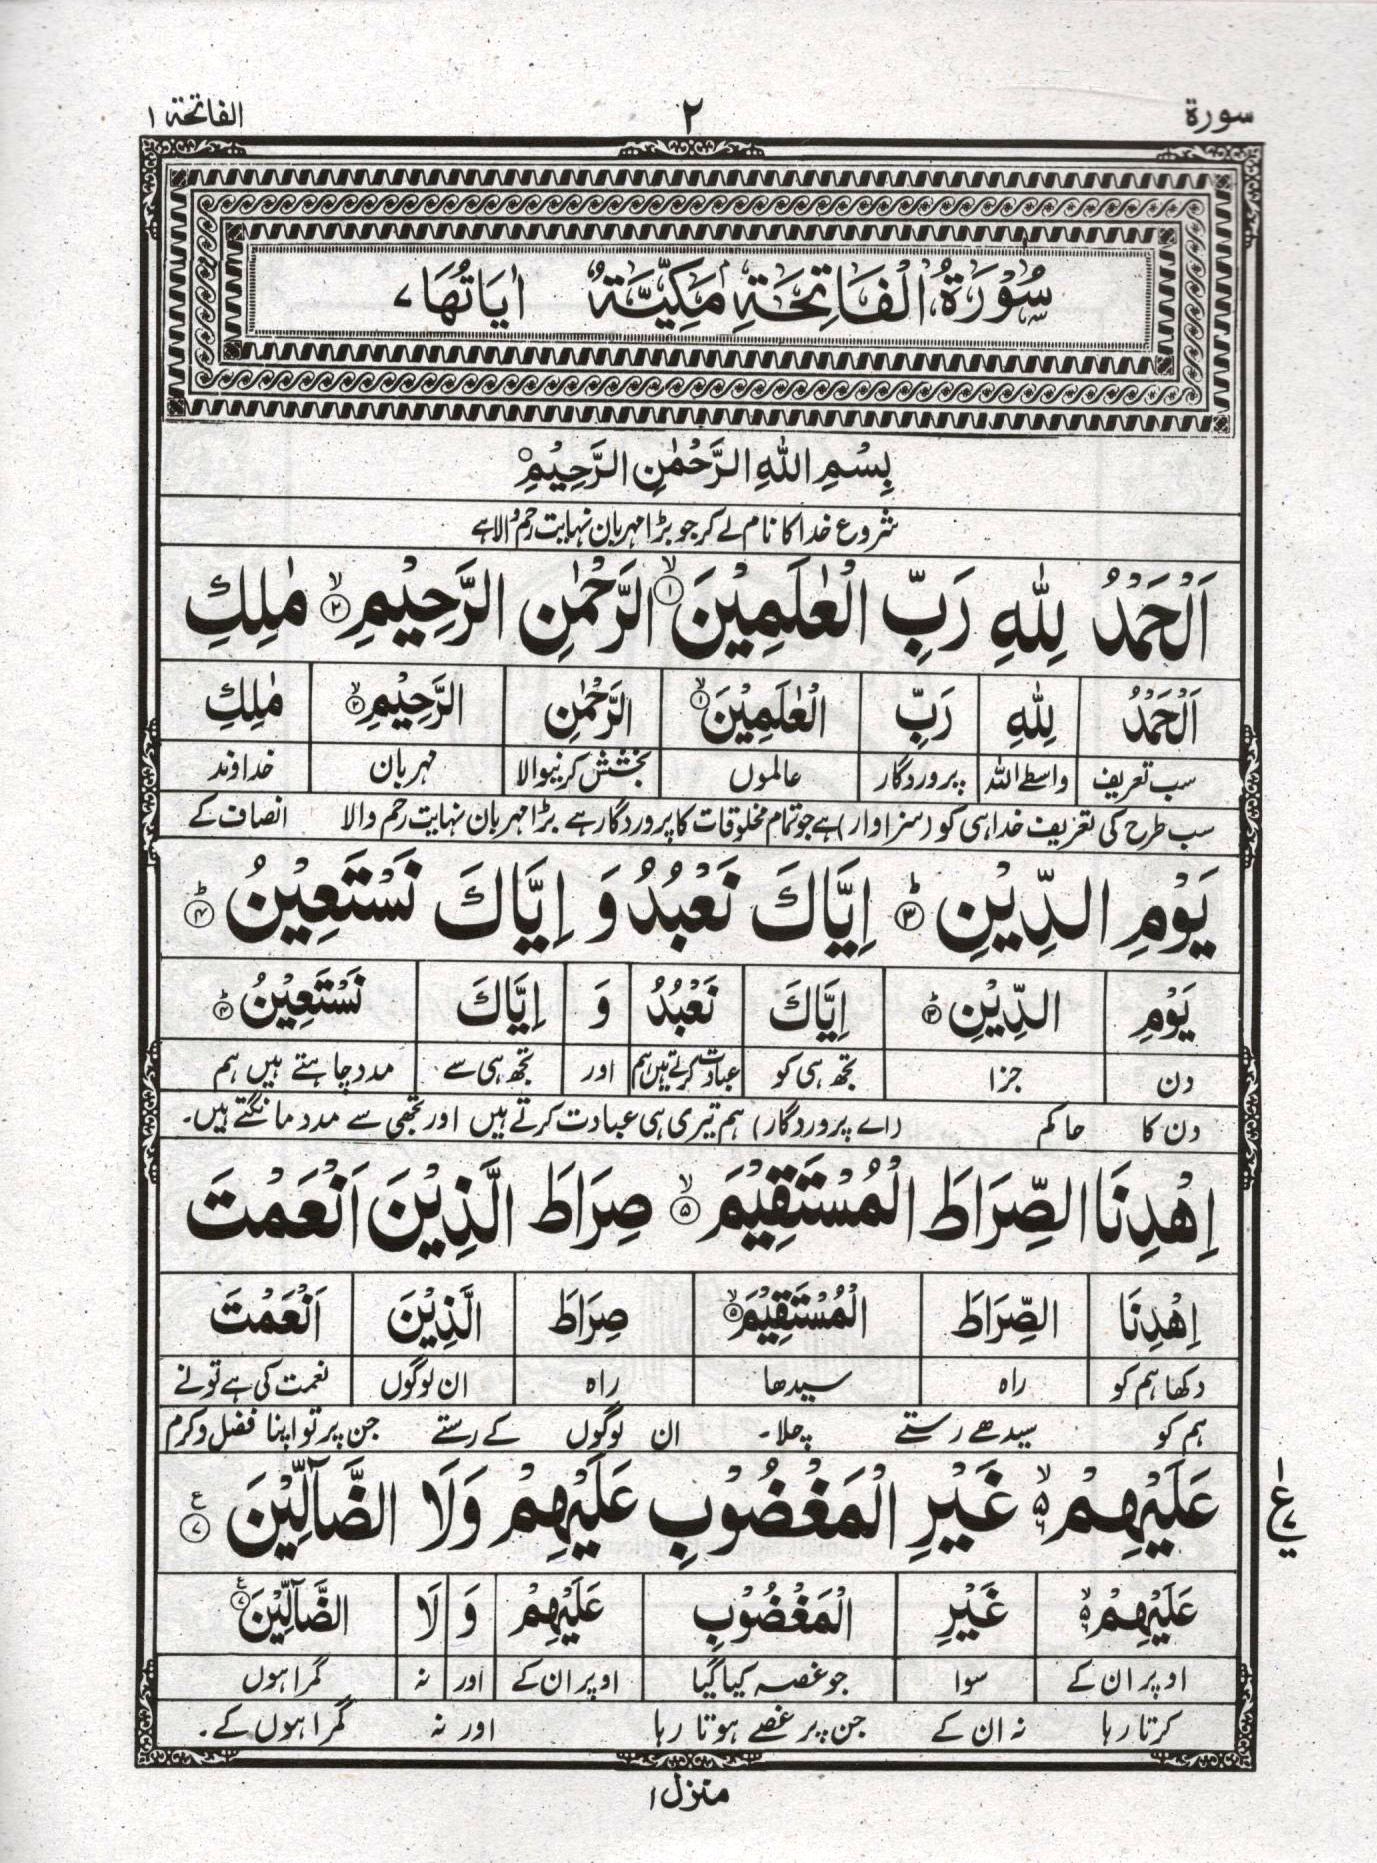 سورة ٢ الفاتحة ١
سُوْرَةُ الْفَاتِحَةِ مَكِّيَّةٌ اٰيَاتُهَا ٧
بِسْمِ اللّٰهِ الرَّحْمٰنِ الرَّحِيْمِ
شروع خدا کا نام لے کر جو بڑا مہربان نہایت رحم والا ہے
اَلْحَمْدُ لِلّٰهِ رَبِّ الْعٰلَمِيْنَ ۙ﴿١﴾ الرَّحْمٰنِ الرَّحِيْمِ ۙ﴿٢﴾ مٰلِكِ
اَلْحَمْدُ لِلّٰهِ رَبِّ الْعٰلَمِيْنَ ۙ﴿١﴾ الرَّحْمٰنِ الرَّحِيْمِ ۙ﴿٢﴾ مٰلِكِ
سب تعریف واسطے اللہ پروردگار عالموں بخشش کرنیوالا مہربان خداوند
سب طرح کی تعریف خدا ہی کو (سزاوار) ہے جو تمام مخلوقات کا پروردگار ہے بڑا مہربان نہایت رحم والا انصاف کے
يَوْمِ الدِّيْنِ ؕ﴿٣﴾ اِيَّاكَ نَعْبُدُ وَ اِيَّاكَ نَسْتَعِيْنُ ؕ﴿٤﴾
يَوْمِ الدِّيْنِ ؕ﴿٣﴾ اِيَّاكَ نَعْبُدُ وَ اِيَّاكَ نَسْتَعِيْنُ ؕ﴿٤﴾
دن جزا تجھ ہی کو عبادت کرتے ہیں ہم اور تجھ ہی سے مدد چاہتے ہیں ہم
دن کا حاکم (اے پروردگار) ہم تیری ہی عبادت کرتے ہیں اور تجھی سے مدد مانگتے ہیں۔
اِهْدِنَا الصِّرَاطَ الْمُسْتَقِيْمَ ۙ﴿٥﴾ صِرَاطَ الَّذِيْنَ اَنْعَمْتَ
اِهْدِنَا الصِّرَاطَ الْمُسْتَقِيْمَ ۙ﴿٥﴾ صِرَاطَ الَّذِيْنَ اَنْعَمْتَ
دکھا ہم کو راہ سیدھا راہ ان لوگوں نعمت کی ہے تو نے
ہم کو سیدھے رستے چلا۔ ان لوگوں کے رستے جن پر تو اپنا فضل و کرم
عَلَيْهِمْ ۙ۵ۙ۬ غَيْرِ الْمَغْضُوْبِ عَلَيْهِمْ وَلَا الضَّآلِّيْنَ ع﴿٧﴾
ع ١ ٧
عَلَيْهِمْ ۙ۵ غَيْرِ الْمَغْضُوْبِ عَلَيْهِمْ وَ لَا الضَّآلِّيْنَ ع﴿٧﴾
اوپر ان کے سوا جو غصہ کیا گیا اوپر ان کے اور نہ گمراہوں
کرتا رہا نہ ان کے جن پر غصے ہوتا رہا اور نہ گمراہوں کے۔
منزل ١